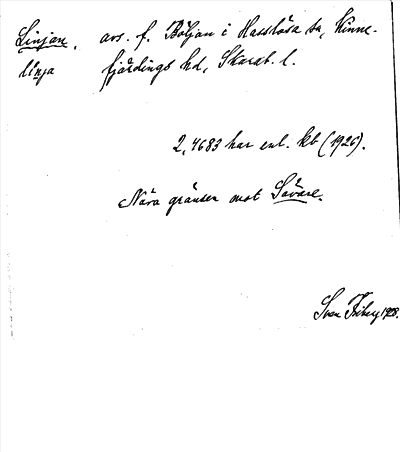 Linjan, avs. f. Böljan i Hasslösa sn, Kinne-
linja fjärdings hd, Skarab. l.
2,4683 har enl. kb (1926).
Nära gränsen mot Sävare.
Sven Friberg 1928.